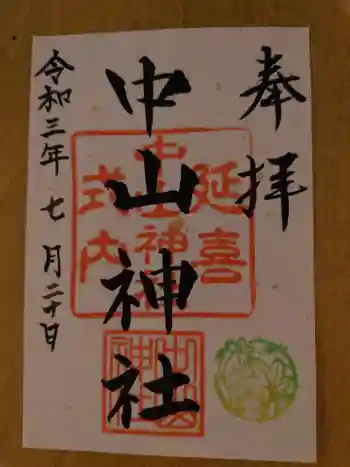 奉拝
中山神社
延喜
式内
中山神社
令和三年七月二十日